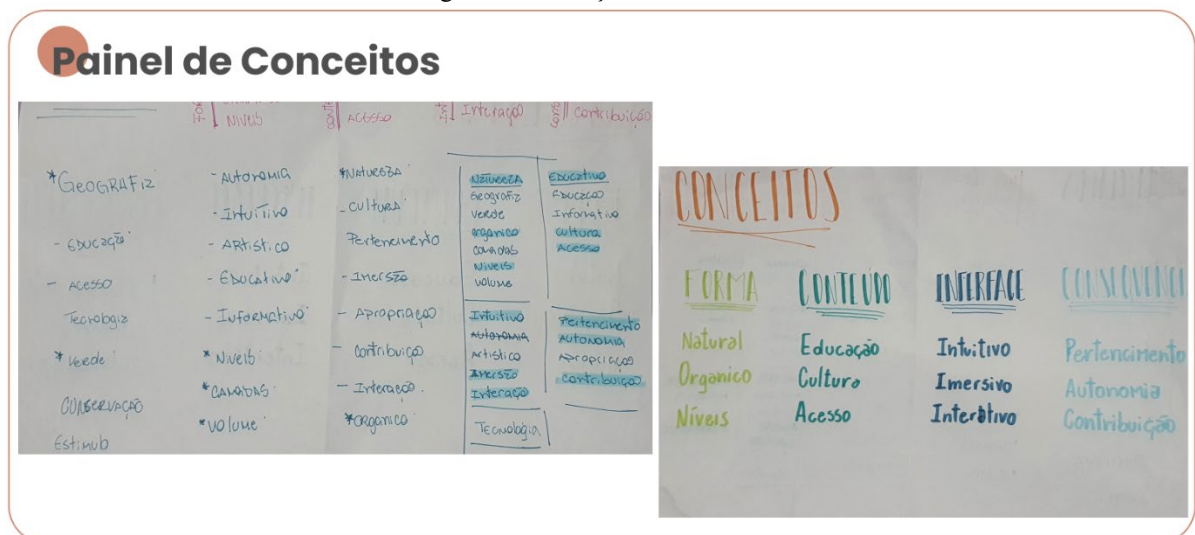 Painel de Conceitos
Níveis
Acesso
Interação
Contribuição
*Geografia
- Educação
- Acesso
Tecnologia
* Verde
Conservação
Estimulo
- Autonomia
- Intuitivo
- Artistico
- Educativo
- Informativo
* Níveis
*Camadas
*Volume
*Natureza
- Cultura
Pertencimento
- Imersão
- Apropriação
- Contribuição
- Interação
*Organico
Natureza
Geografia
Verde
Organico
Camadas
Níveis
Volume
Educativo
Educação
Informativo
Cultura
Acesso
Intuitivo
Autonomia
Artistico
Imersão
Interação
Pertencimento
Autonomia
Apropriação
Contribuição
Tecnologia
CONCEITOS
FORMA
Natural
Organico
Níveis
CONTEÚDO
Educação
Cultura
Acesso
INTERFACE
Intuitivo
Imersivo
Interativo
Pertencimento
Autonomia
Contribuição